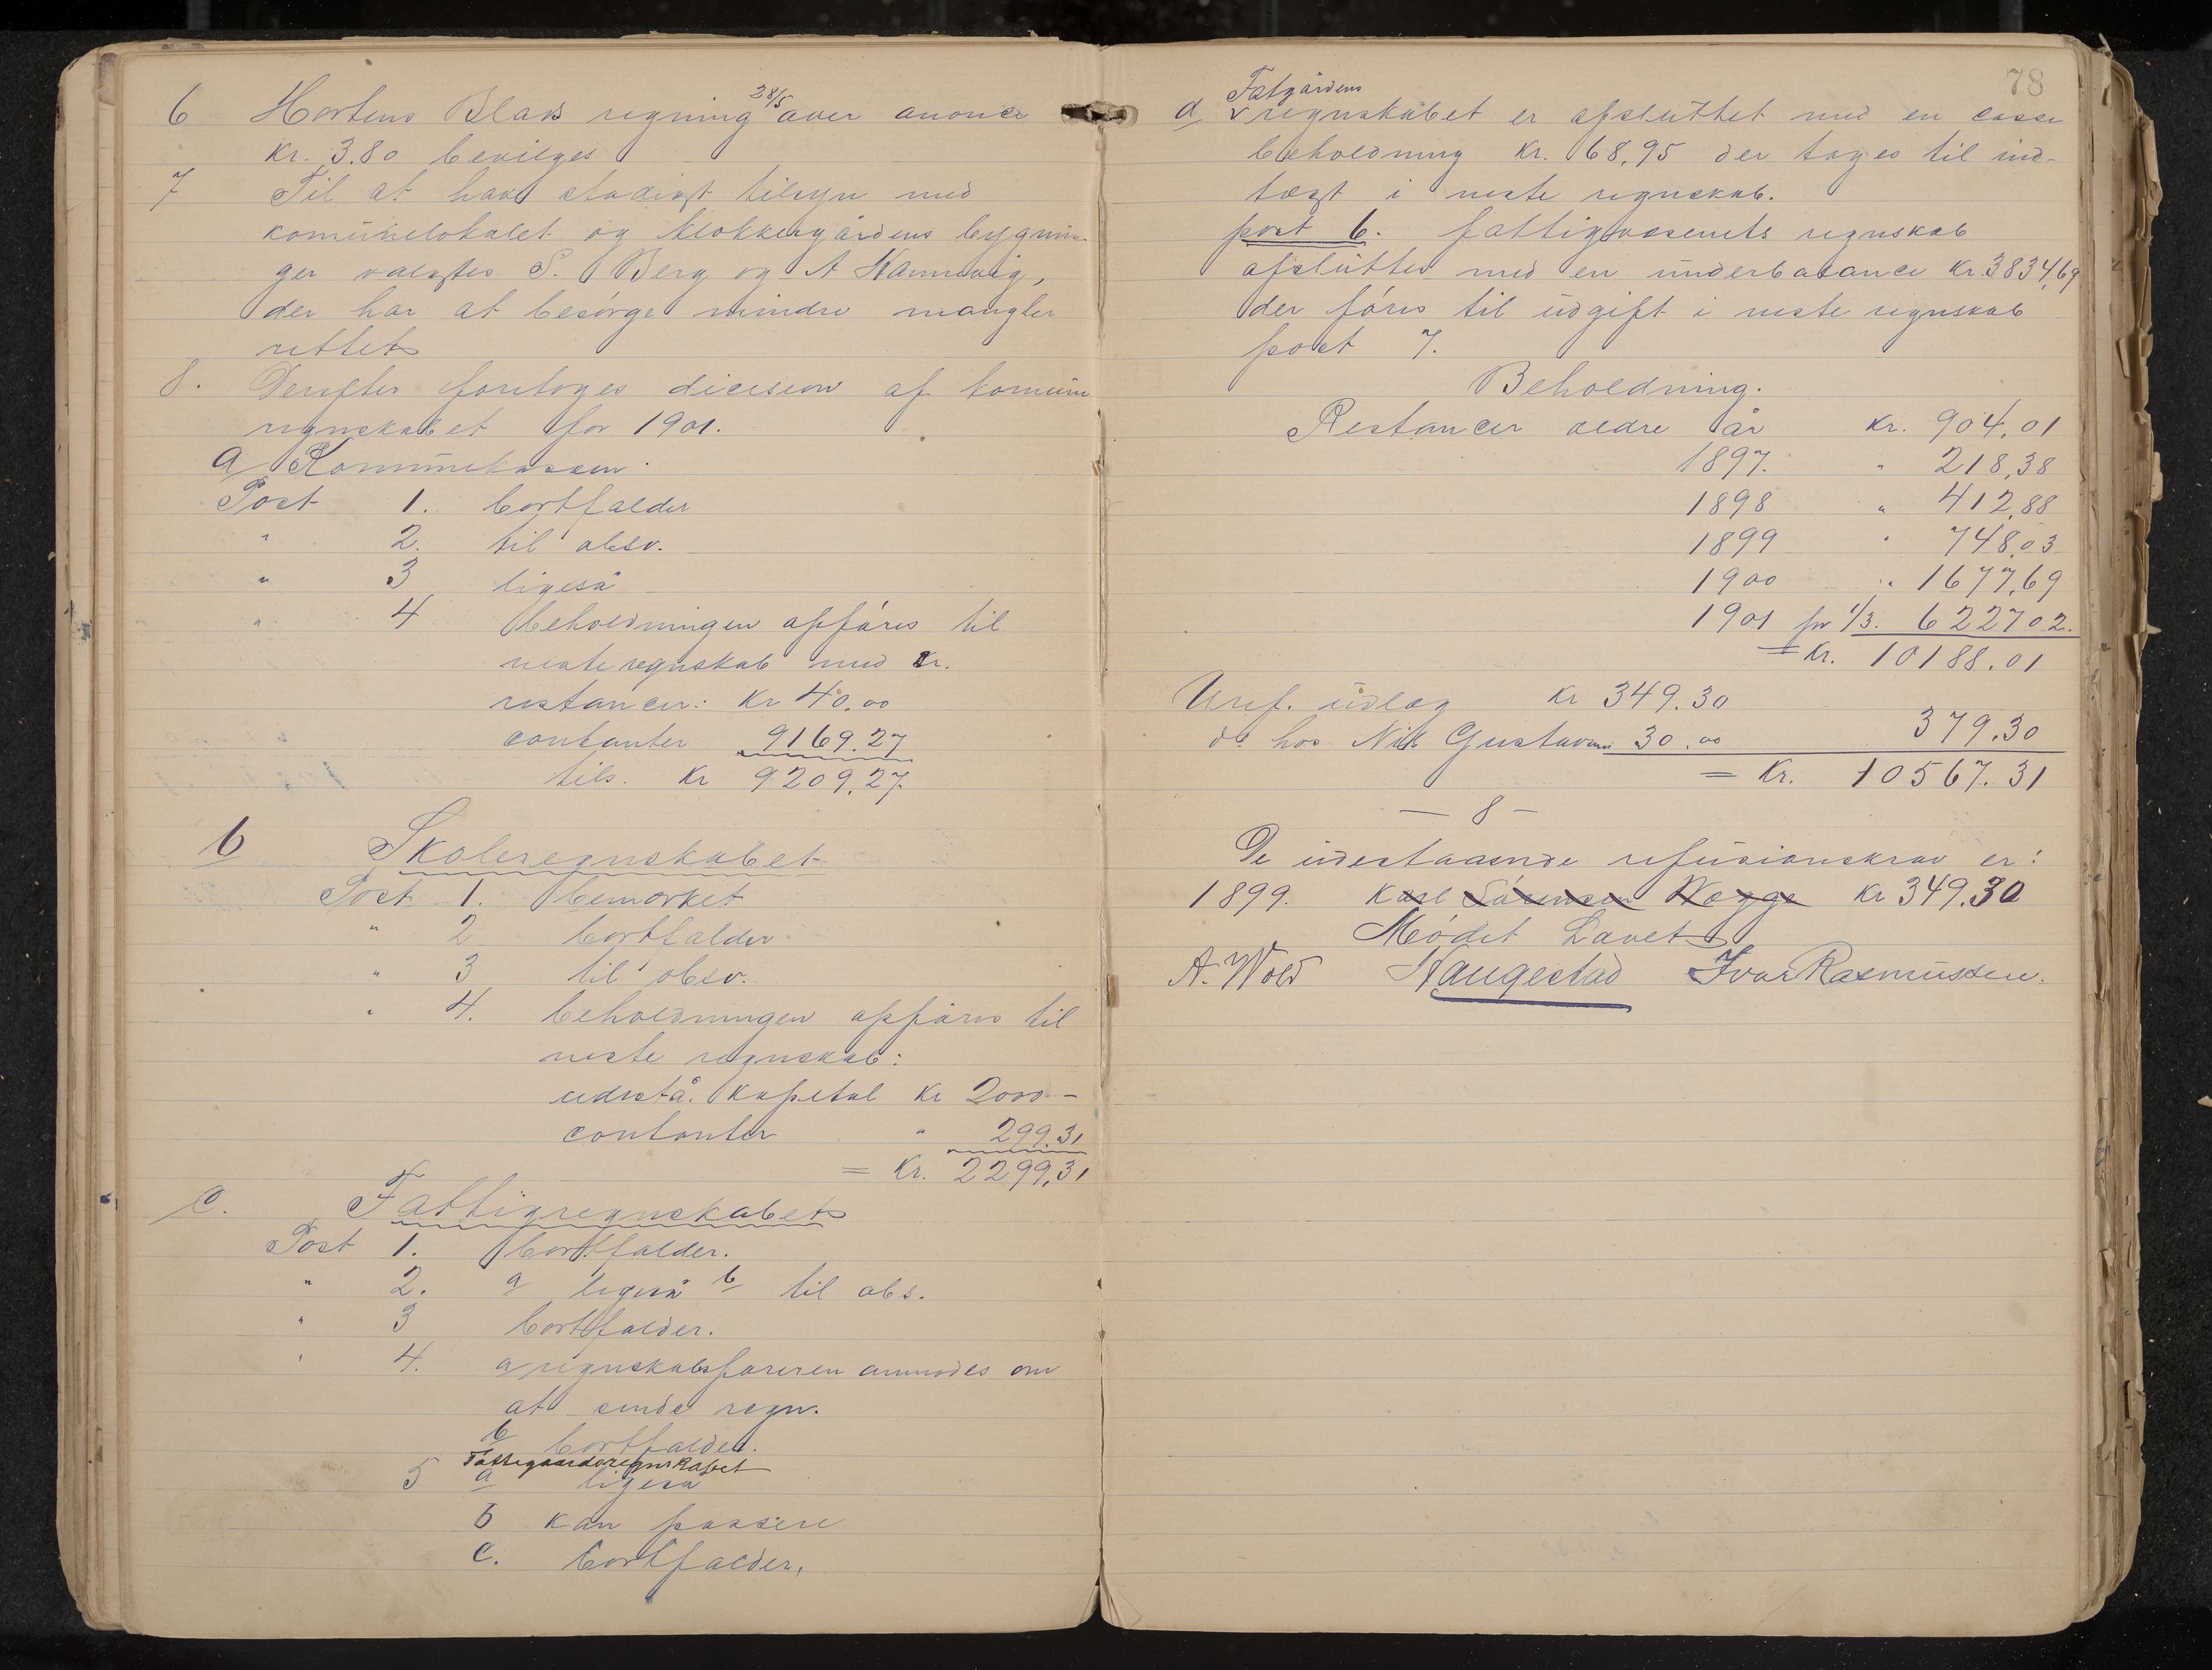 6 Hortens Blads regning 28/5 over anonce
kr. 3.80 bevilges
7 Til at have stadigt tilsyn med
komünelokalet og klokkergårdens bygnin-
ger valgtes S. Berg og A Hannevig,
der har at besörge mindre mangler
rettet
8. Derefter foretoges dicision af komün
regnskabet for 1901.
a Komünekassen.
Post 1. bortfalder
" 2. til obsv.
" 3 ligeså
" 4 beholdningen opföres til
neste regnskab med kr.
restancer: kr 40.00
contanter 9169.27
tils. kr 9209.27.
b Skoleregnskabet
Post 1. bemerket
" 2 bortfalder
" 3 til obsv.
" 4. beholdningen opföres til
neste regnskab:
udestå. kapital kr 2000 -
contanter " 299.31
= kr. 2299,31
c. Fattigregnskabet
Post 1. bortfalder.
" 2. a ligeså b til obs.
" 3 bortfalder.
" 4. a regnskabsföreren anmodes om
at sende regn.
b bortfalder.
Fattiggaardsregnskabet
5 a ligeså
b kan passere
c. bortfalder.
78
Fatgårdens
d v regnskabet er afslüttet med en casse
beholdning kr. 68,95 der tages til ind-
tægt i neste regnskab.
post 6. fattigvæsenets regnskab
afslüttes med en ünderbalance kr. 3834,69
der föres til üdgift i neste regnskab
post 7.
Beholdning.
Restancer ældre år kr. 904,01
1897. " 218,38
1898 " 412,88
1899 " 748,03
1900 " 1677,69
1901 pr 1/3. 622702.
= kr. 10188.01
Uref. üdlæg kr 349.30
do hos Nik Gustavsen 30.00 379.30
= kr. 10567.31
— 8 —
De üdestaaende refüsionskrav er:
1899. Karl Sörensen Wegge kr 349.30
Mödet hævet
A. Wold Haugestad Ivar Rasmüssen.